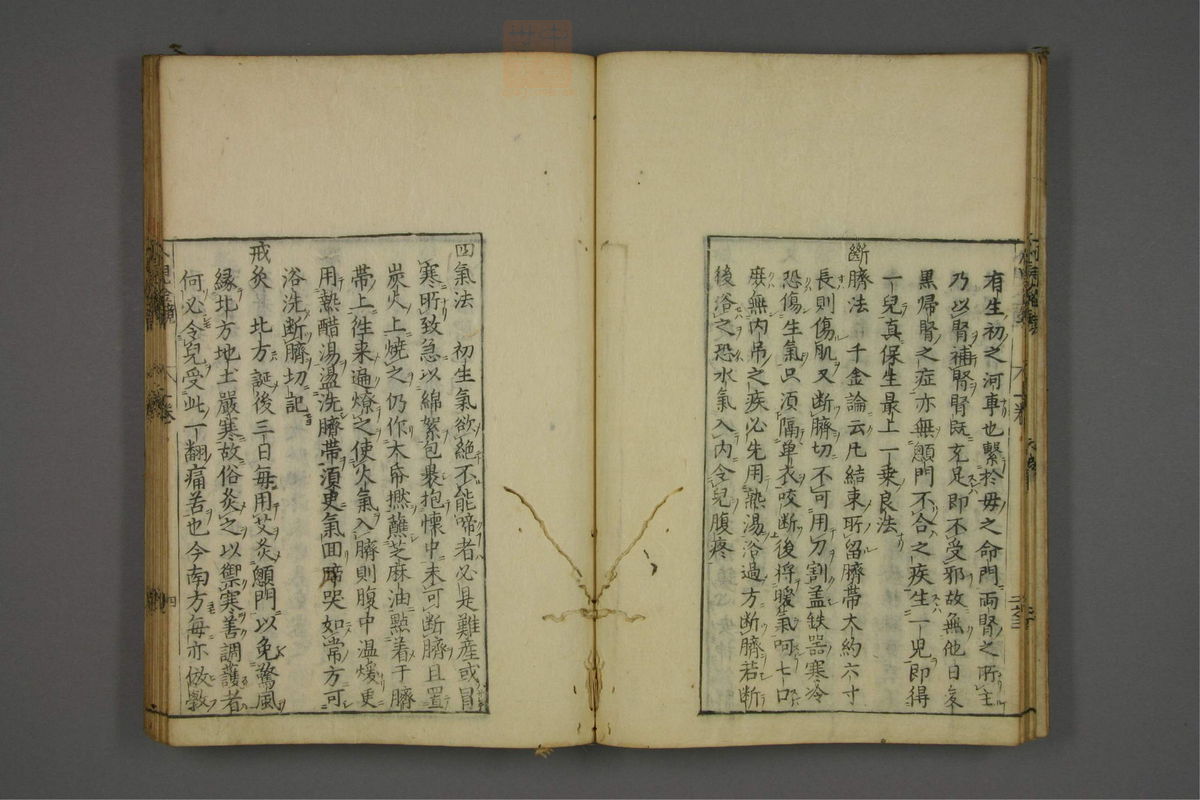 有生初之河車也繫於母之命門両腎之所主
乃以腎補腎腎既充足即不受邪故無他日変
黒帰腎之症亦無顖門不合之疾生一児即得
一兒真保生最上一乗良法
斷臍法 千金論云凡結束所留臍帯大約六寸
長則傷肌又断臍切不可用刀割盖鉄器寒冷
恐傷生氣只湏隔単衣咬断後将暖氣呵七口
庶無内吊之疾必先用熱湯浴過方断臍若断
後浴之恐水氣入内令兒腹疼
回氣法 初生氣欲絶不能啼者必是難産或冒
寒所致急以綿絮包裹抱懐中未可断臍且置
炭火上焼之仍作大帋撚蘸芝麻油點着于臍
帯上徃来遍燎之使火氣入臍則腹中温煖更
用熱醋湯盪洗臍帯湏臾氣回啼哭如常方可
浴洗断臍切記
戒灸 北方誕後三日毎用艾灸顖門以免驚風
縁北方地土嚴寒故俗灸之以禦寒善調護者
何必令兒受此一翻痛苦也今南方毎亦倣斅